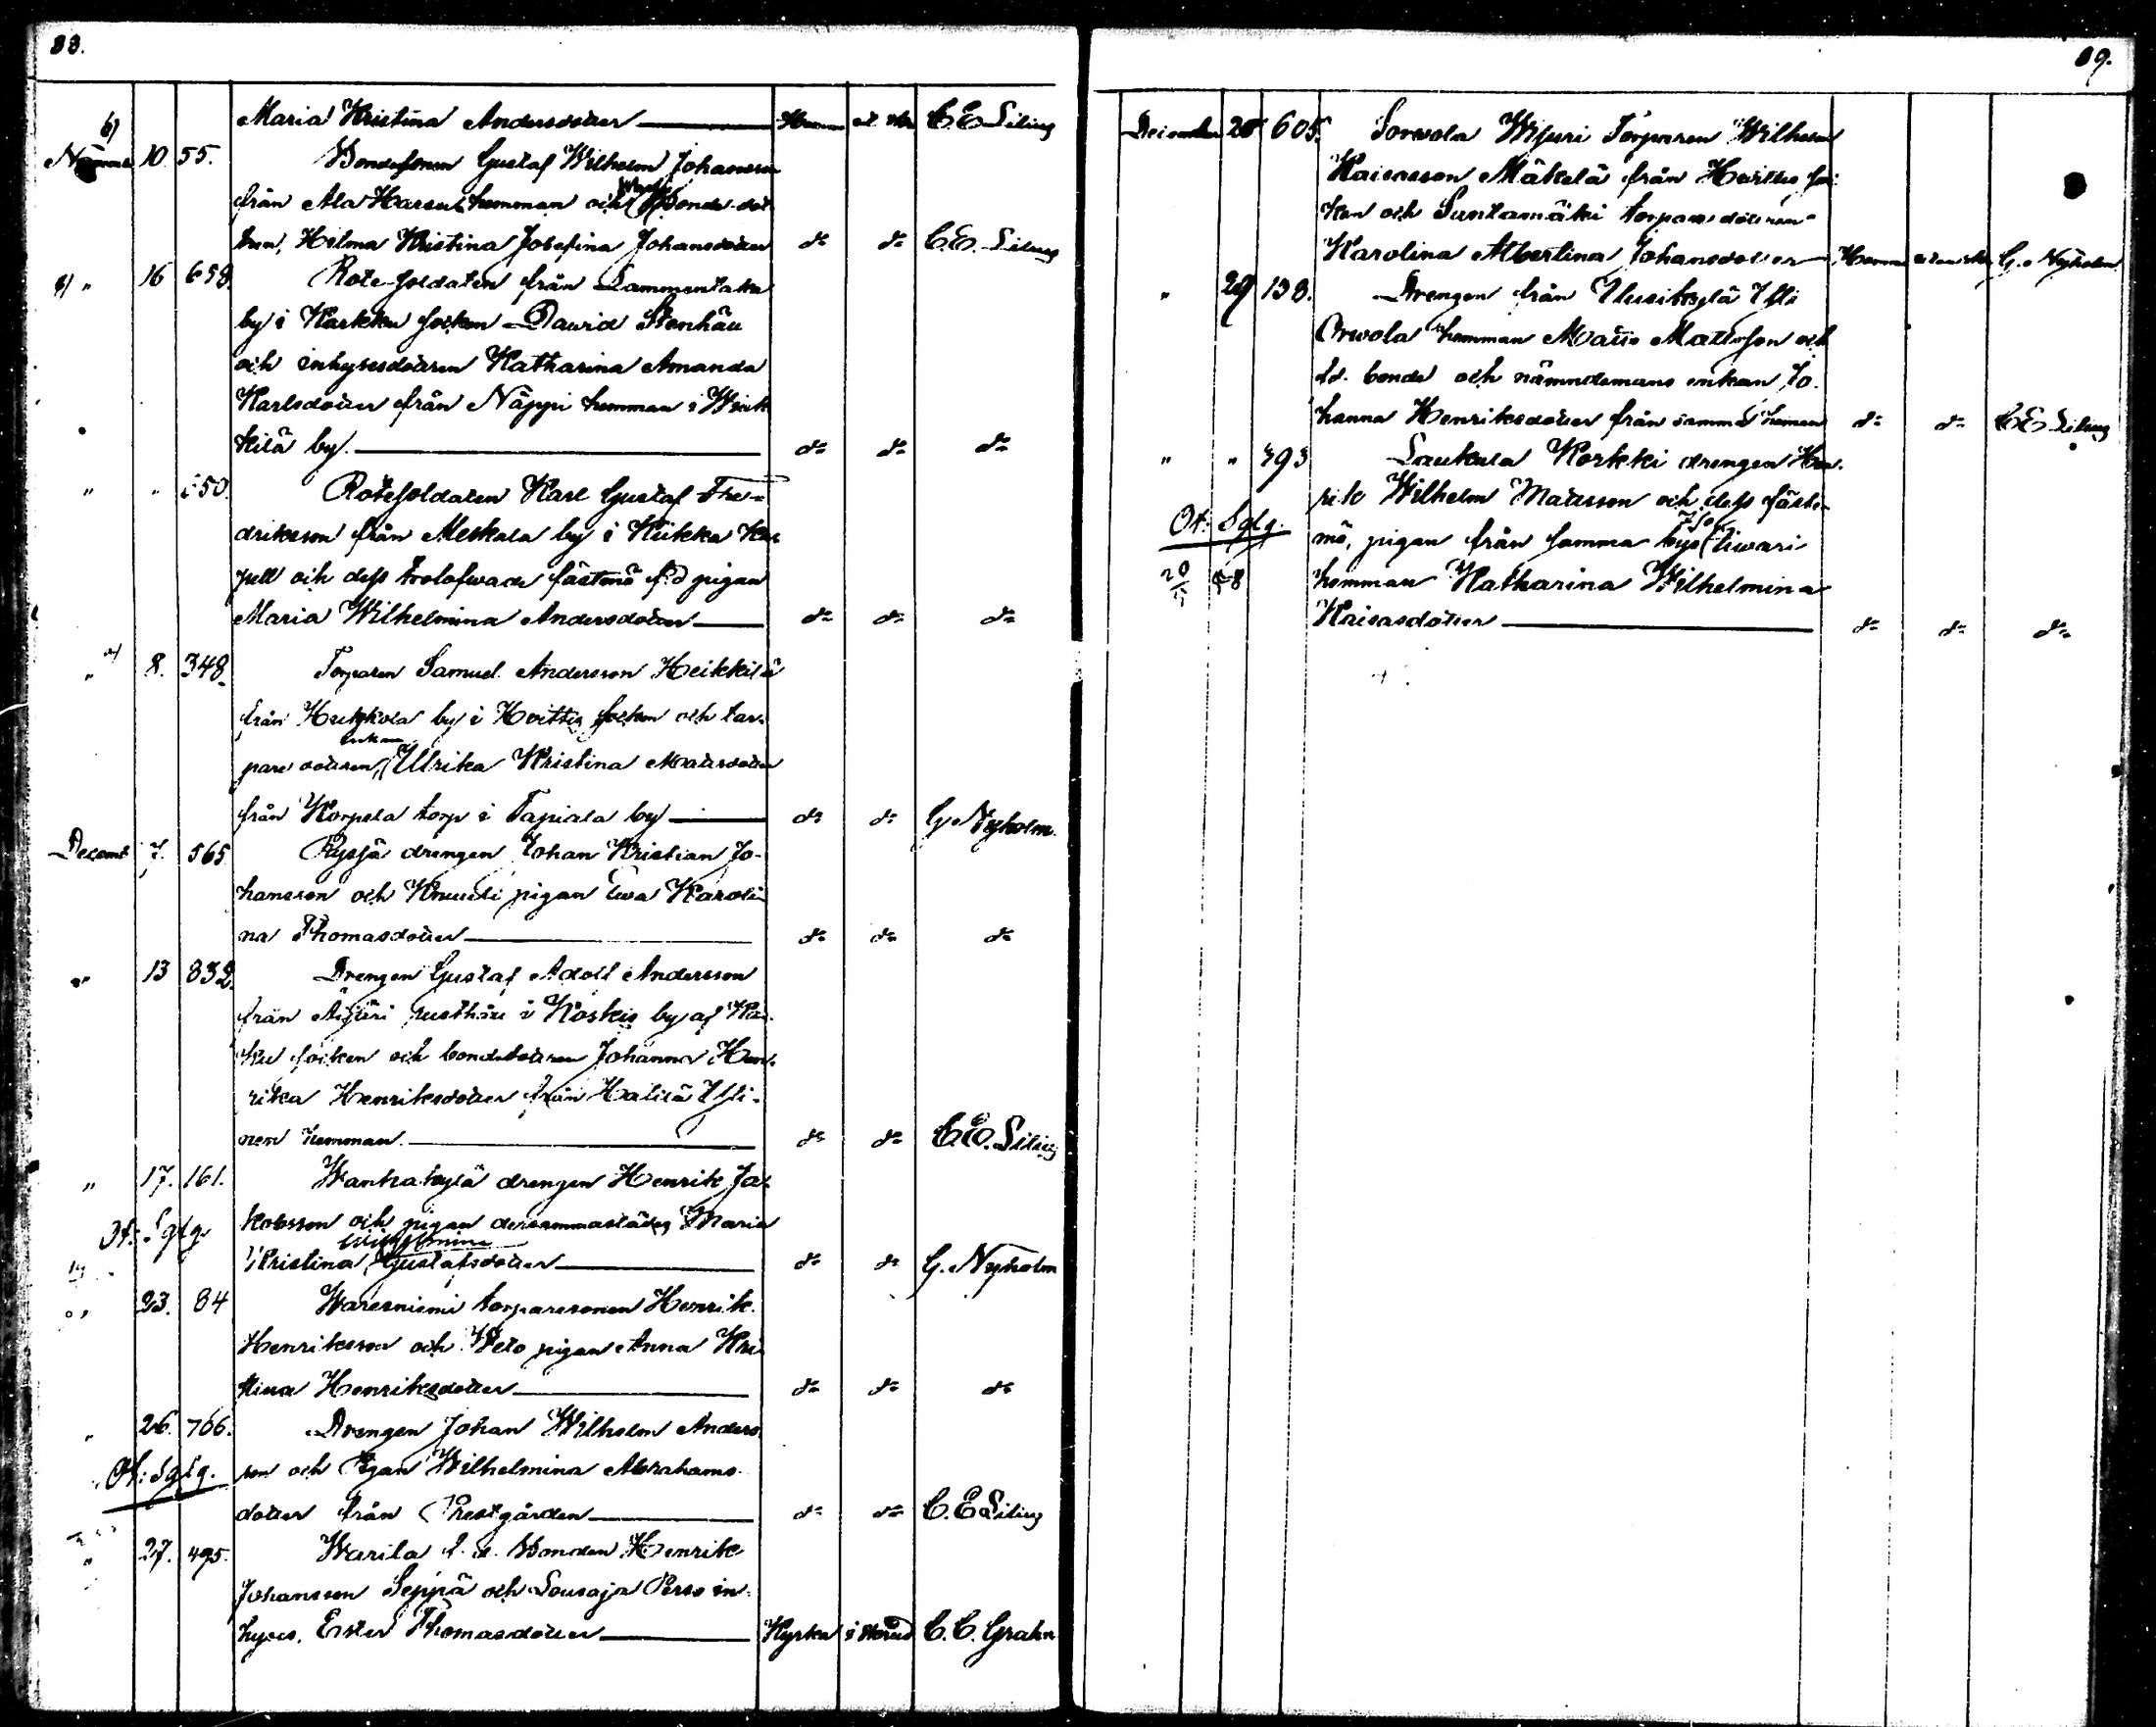 88.
Maria Kristina Andersdotter Hemma C. E. Lilius
6) 10. 55. Bondesonen Gustaf Wilhelm Johansson
från Ala Harsu hemman och Bonde dot-
tren, Hilma Kristina Josefina Johansdotter d:o d:o C. E. Lilius
" 16 658. Rote Soldaten från Sammentaka
by i Karkku socken David Stenhäll
och inhysesdottren Katharina Amanda
Karlsdotter från Näppi hemman i
kilä by. d:o d:o d:o
" " Rotesoldaten Karl Gustaf Fre-
driksson från Meskala by i Kiikka Ka-
pell och dess trolofwade fästmö f.d pigan
Maria Wilhelmina Andersdotter d:o d:o d:o
" 8. 348. Torparen Samuel Andersson Heikkilä
från by i Hvittis socken och tor-
pare dottren, enkan Ulrika Kristina Matsdotter
från Korpela torp i Tapiala by d:o d:o G. Nyholm.
Decemb 7. 565 Ryssä drengen Johan Kristian Jo-
hansson och Knuuti pigan Ewa Karoli-
na Thomasdotter d:o d:o d:o
" 13 832. Drengen Gustaf Adolf Andersson
från Äijäri rusthåll i Koskis by af Kar-
ku socken och bondedottren Johanna Hen-
rika Henriksdotter från Halilä
nen hemman. d:o d:o C. E. Lilius
" 17. 161. Wanhakylä drengen Henrik Ja-
kobsson och pigan dersammastädes Maria
Kristina Wilhelmina Gustafsdotter d:o d:o G. Nyholm
" 23. 84 Waresniemi torparesonen Henrik
Henriksson och pigan Anna Kris-
tina Henriksdotter d:o d:o d:o
" 26. 766. Drengen Johan Wilhelm Anders-
Ot: Sglg. son och Pigan Wilhelmina Abrahams-
dotter från Prestgården d:o d:o C. E Lilius
" 27. 495. Warila f. d. Bonden Henrik
Johansson Seppä och Sousaja Perso in-
hyses. Ester Thomasdotter Kyrka C. C. Grahn
89.
December 605. Sorvola Wijuri Torparen Wilhelm
Kaisasson Mäkelä från Hvittis soc-
ken och Suntamäki torpare dottren
Karolina Albertina Johansdotter Hemma G. Nyholm
" 29 138. Drengen från Uusikylä Yli
Orwola hemman Matts Mattsson och
f.d. bonde och nämndemans enkan Jo-
hanna Henriksdotter från samma heman d:o d:o C E Lilius
" " 393 Laukula Korkki drengen Hen-
rik Wilhelm Matsson och dess fäst-
Ot: Sglg. mö, pigan från samma bys
hemman Katharina Wilhelmina
Kaisasdotter d:o d:o d:o